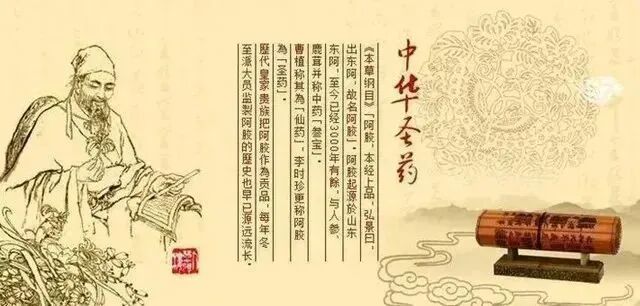 中华圣药
《本草纲目》「阿胶，本经上品，弘景曰，
出东阿，故名阿胶」。阿胶起源於山东
东阿，至今已经3000年有餘，与人参、
鹿茸并称中药「叁宝」。
曹植称其為「仙药」，李时珍更称阿胶
為「圣药」。
歷代皇家貴族把阿胶作為貢品，每年冬
至派大员监製阿胶的歷史也早已源远流长。